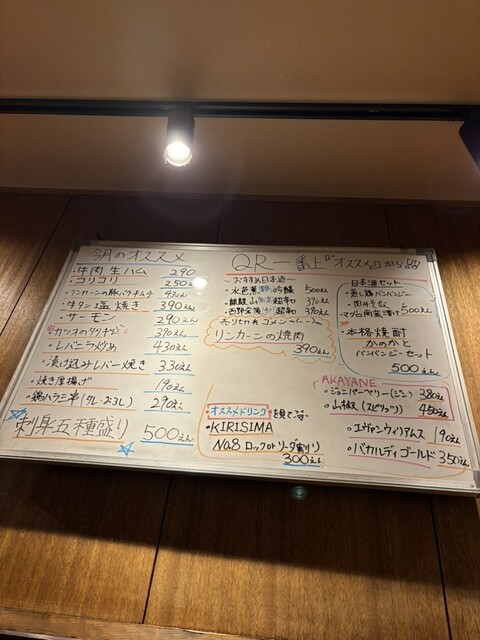 今月のオススメ
・牛肉生ハム 290
・コリコリ 250えん
・リンカーンの豚バラキムチ 430えん
・牛タン塩焼き 390えん
・サーモン 290えん
カツオのタタキ 390えん
・レバニラ炒め 430えん
・漬け込みレバー焼き 330えん
・焼き厚揚げ 190えん
・鶏ハラミ串(タレ・おろし) 290えん
刺身五種盛り 500えん
QR一番上「オススメ」から
〜おすすめ日本酒〜
・水芭蕉 吟醸 500えん
・麒麟山 超辛口 390えん
・西野金陵 超辛口 390えん
売り切れゴメン
リンカーンの焼肉
390えん
・オススメドリンク
・KIRISIMA
No.8 ロック or ソーダ割り
300えん
日本酒セット
・蒸し鶏バンバンジー
・マグロ 漬け 500えん
・本格焼酎
かのかと
バンバンジーセット
500えん
AKAYANE
・ジュニパーベリー(ジン) 380えん
・山椒(スピリッツ) 450えん
・エヴァンウィリアムス 190えん
・バカルディゴールド 350えん